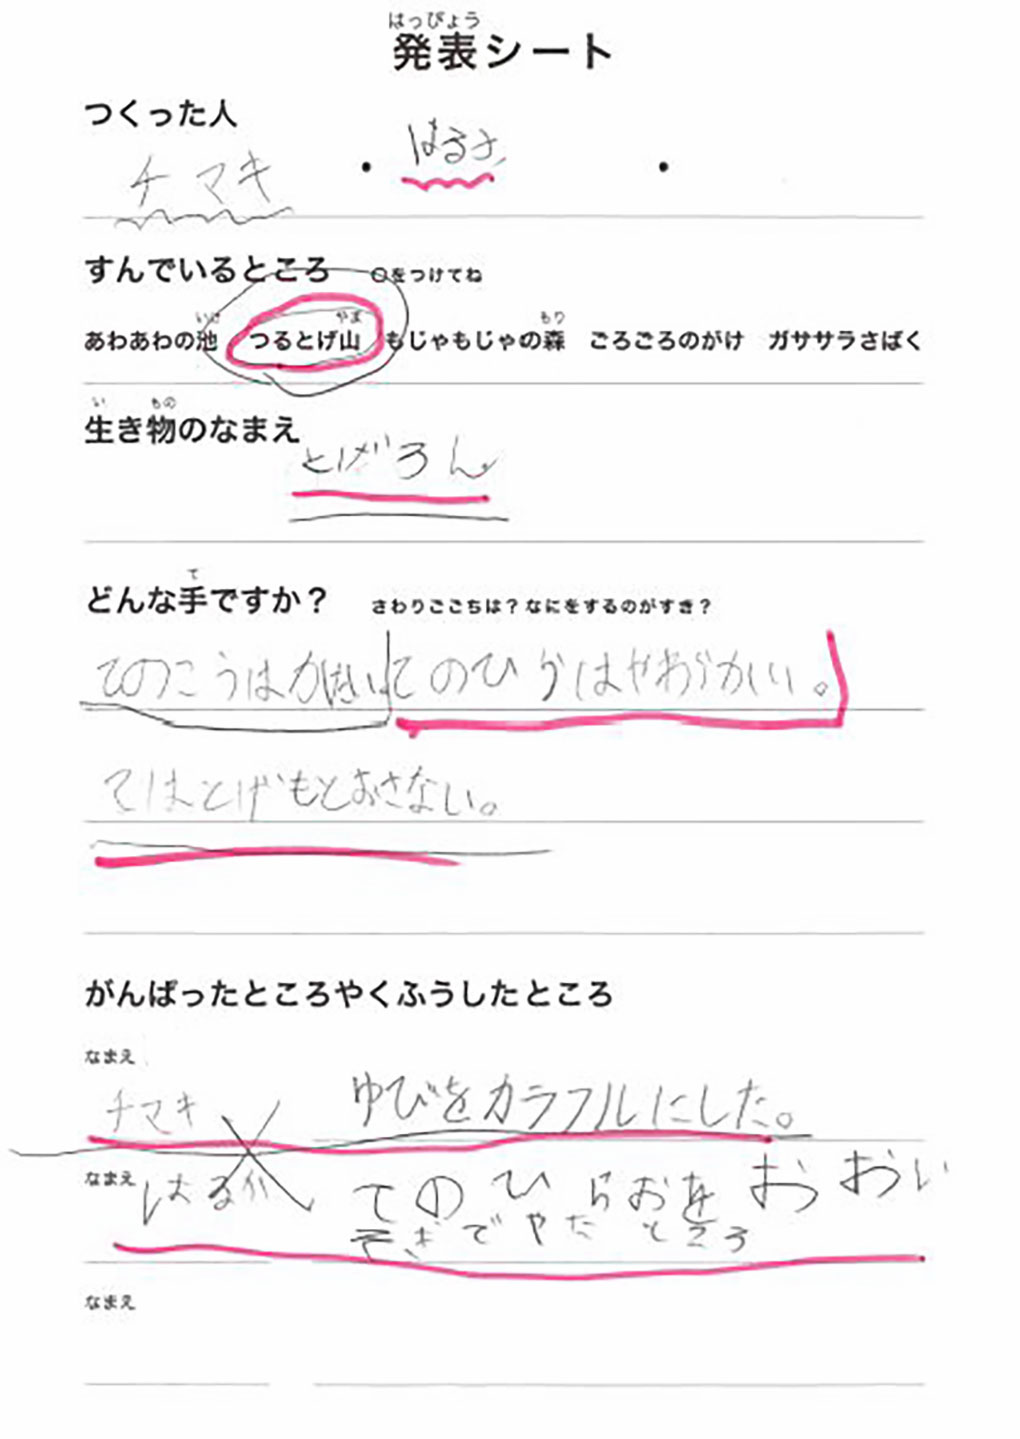 はっぴょう
発表シート
つくった人
チマキ ・ はるさ ・
すんでいるところ ○をつけてね
いけ やま もり
あわあわの池 つるとげ山 もじゃもじゃの森 ごろごろのがけ ガササラさばく
い もの
生き物のなまえ
とげろん
て
どんな手ですか? さわりごこちは?なにをするのがすき?
てのこうはかたい てのひらはやわらかい。
てはとげもとおさない。
がんばったところやくふうしたところ
なまえ
チマキ ゆびをカラフルにした。
なまえ
はるか てのひらおを おおい
でやたところ
なまえ